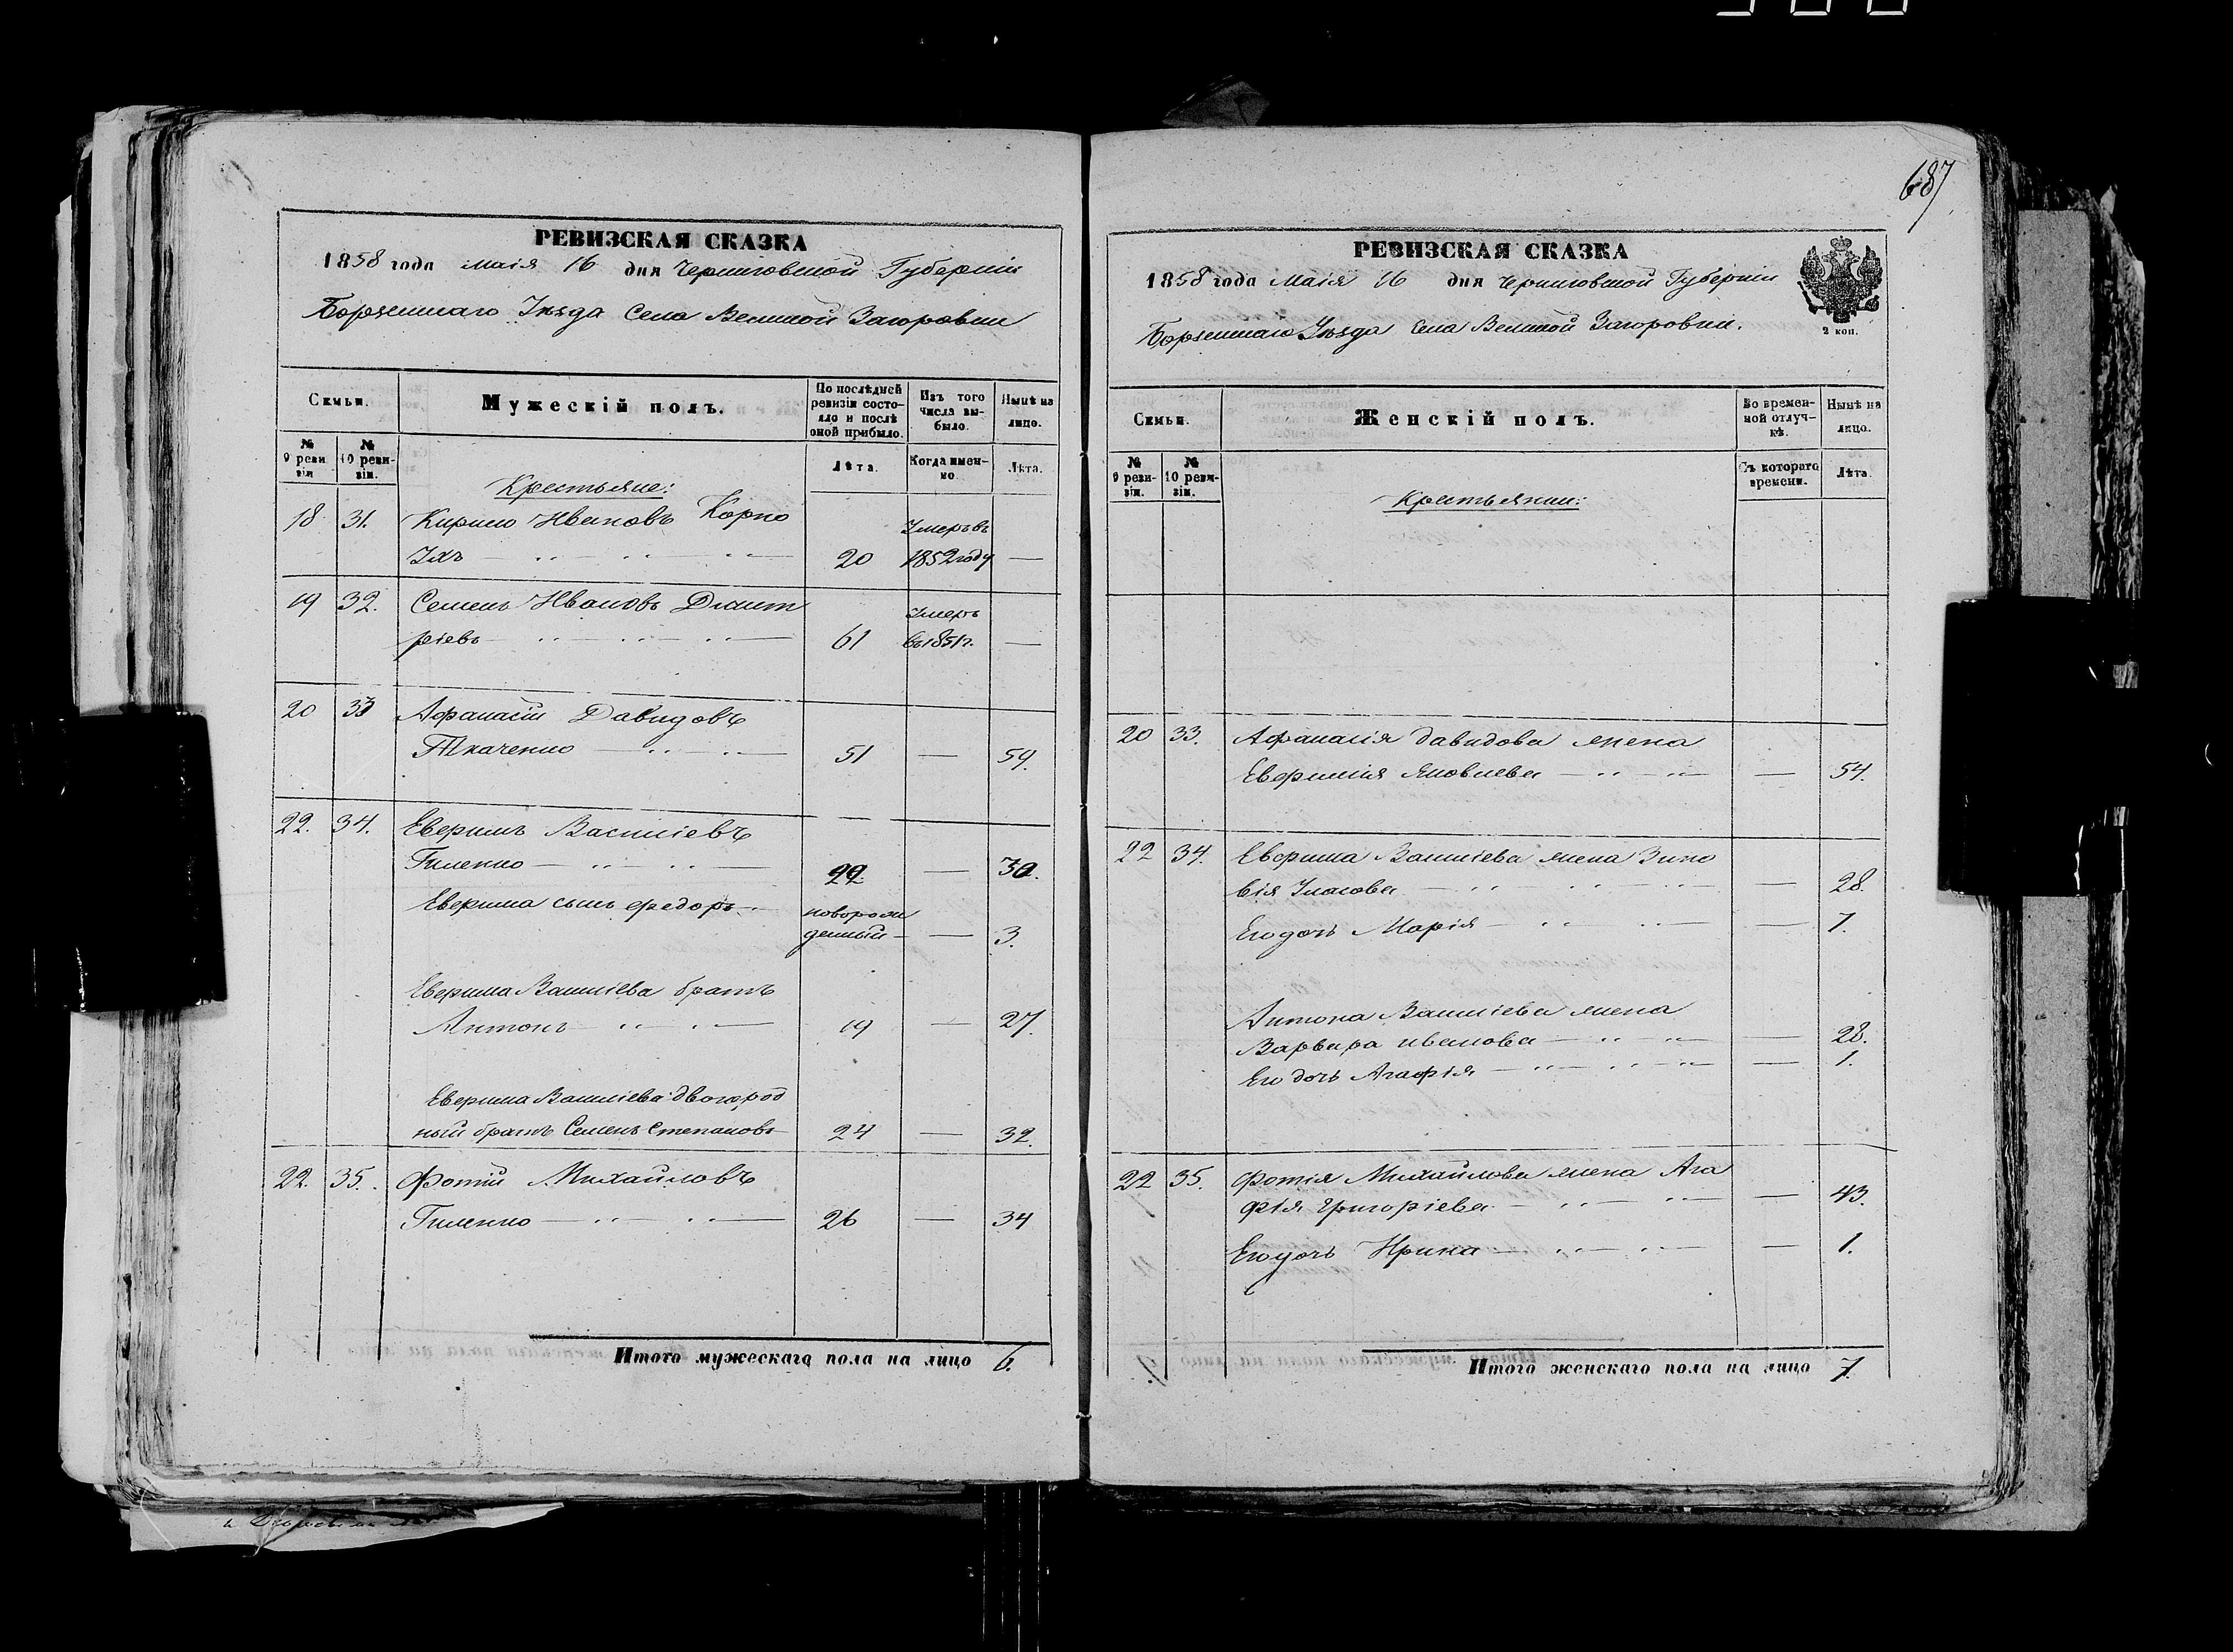 687
РЕВИЗСКАЯ СКАЗКА
1858 года Маія 16 дня Черниговской Губерніи
Борзенскаго Уѣзда Села Великой Загоровки
Семьи.
Мужескій полъ.
По послѣдней ревизіи состояло и послѣ оной прибыло.
Изъ того числа выбыло.
Нынѣ на лицо.
№ 9 ревизіи
№ 10 ревизіи.
Лѣта.
Когда именно.
Лѣта.
Крестьяне:
18 31. Кирило Ивановъ Корно Умеръ въ
20 1852 году —
19 32. Семенъ Ивановъ Дмит Умеръ
ріевъ 61 въ 1851 г. —
20 33 Афанасій Давидовъ
Ткаченко 51 — 59.
22. 34. Евфимъ Василіевъ
Гиленко 22. — 30.
Евфима сынъ Федоръ новорож
денный — 3.
Евфима Василіева братъ
Антонъ 19 — 27.
Евфима Василіева двоюрод
ный братъ Семенъ Степановъ 24 — 32.
22. 35. Фотій Михайловъ
Гиленко 26 — 34
Итого мужескаго пола на лицо 6.
РЕВИЗСКАЯ СКАЗКА
1858 года Маія 16 дня Черниговской Губерніи
Борзенскаго Уѣзда Села Великой Загоровки.
2 коп.
Семьи.
Женскій полъ.
Во временной отлучкѣ.
Нынѣ на лицо.
№ 9 ревизіи.
№ 10 ревизіи.
Съ котораго времени.
Лѣта.
Крестьянки:
20 33. Афанасія Давидова жена
Евфимія Яковлева — 54.
22 34. Евфима Василіева жена Зино
вія Уласова — 28.
Его дочь Марія — 7.
Антона Василіева жена
Варвара Иванова — 28.
Его дочь Агафія — 1.
22 35. Фотія Михайлова жена Ага
фія Григоріева — 43.
Его дочь Ирина — 1.
Итого женскаго пола на лицо 7.